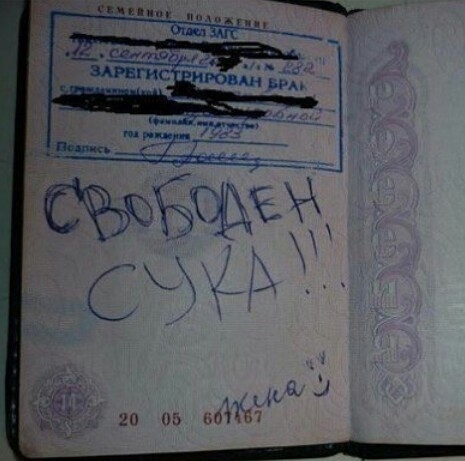 СЕМЕЙНОЕ ПОЛОЖЕНИЕ
Отдел ЗАГС
12 сентября а/з № 282
ЗАРЕГИСТРИРОВАН БРАК
с гражданином(кой)
(фамилия, имя, отчество)
год рождения 1983
Подпись
СВОБОДЕН
СУКА!!!
жена
14
20 05 601467